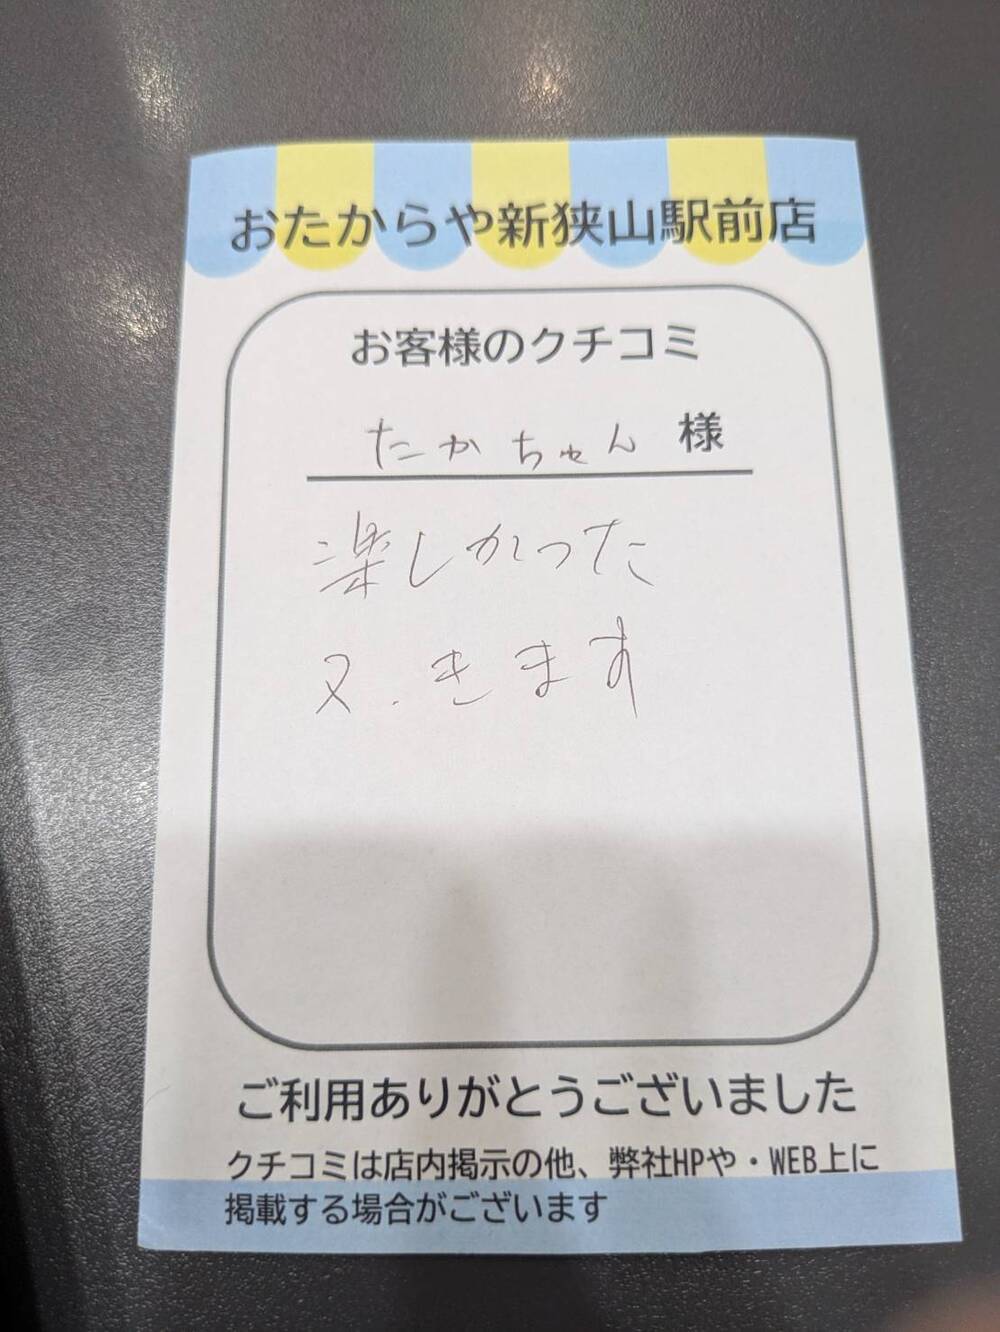 おたからや新狭山駅前店
お客様のクチコミ
たかちゃん 様
楽しかった
又.きます
ご利用ありがとうございました
クチコミは店内掲示の他、弊社HPや・WEB上に
掲載する場合がございます